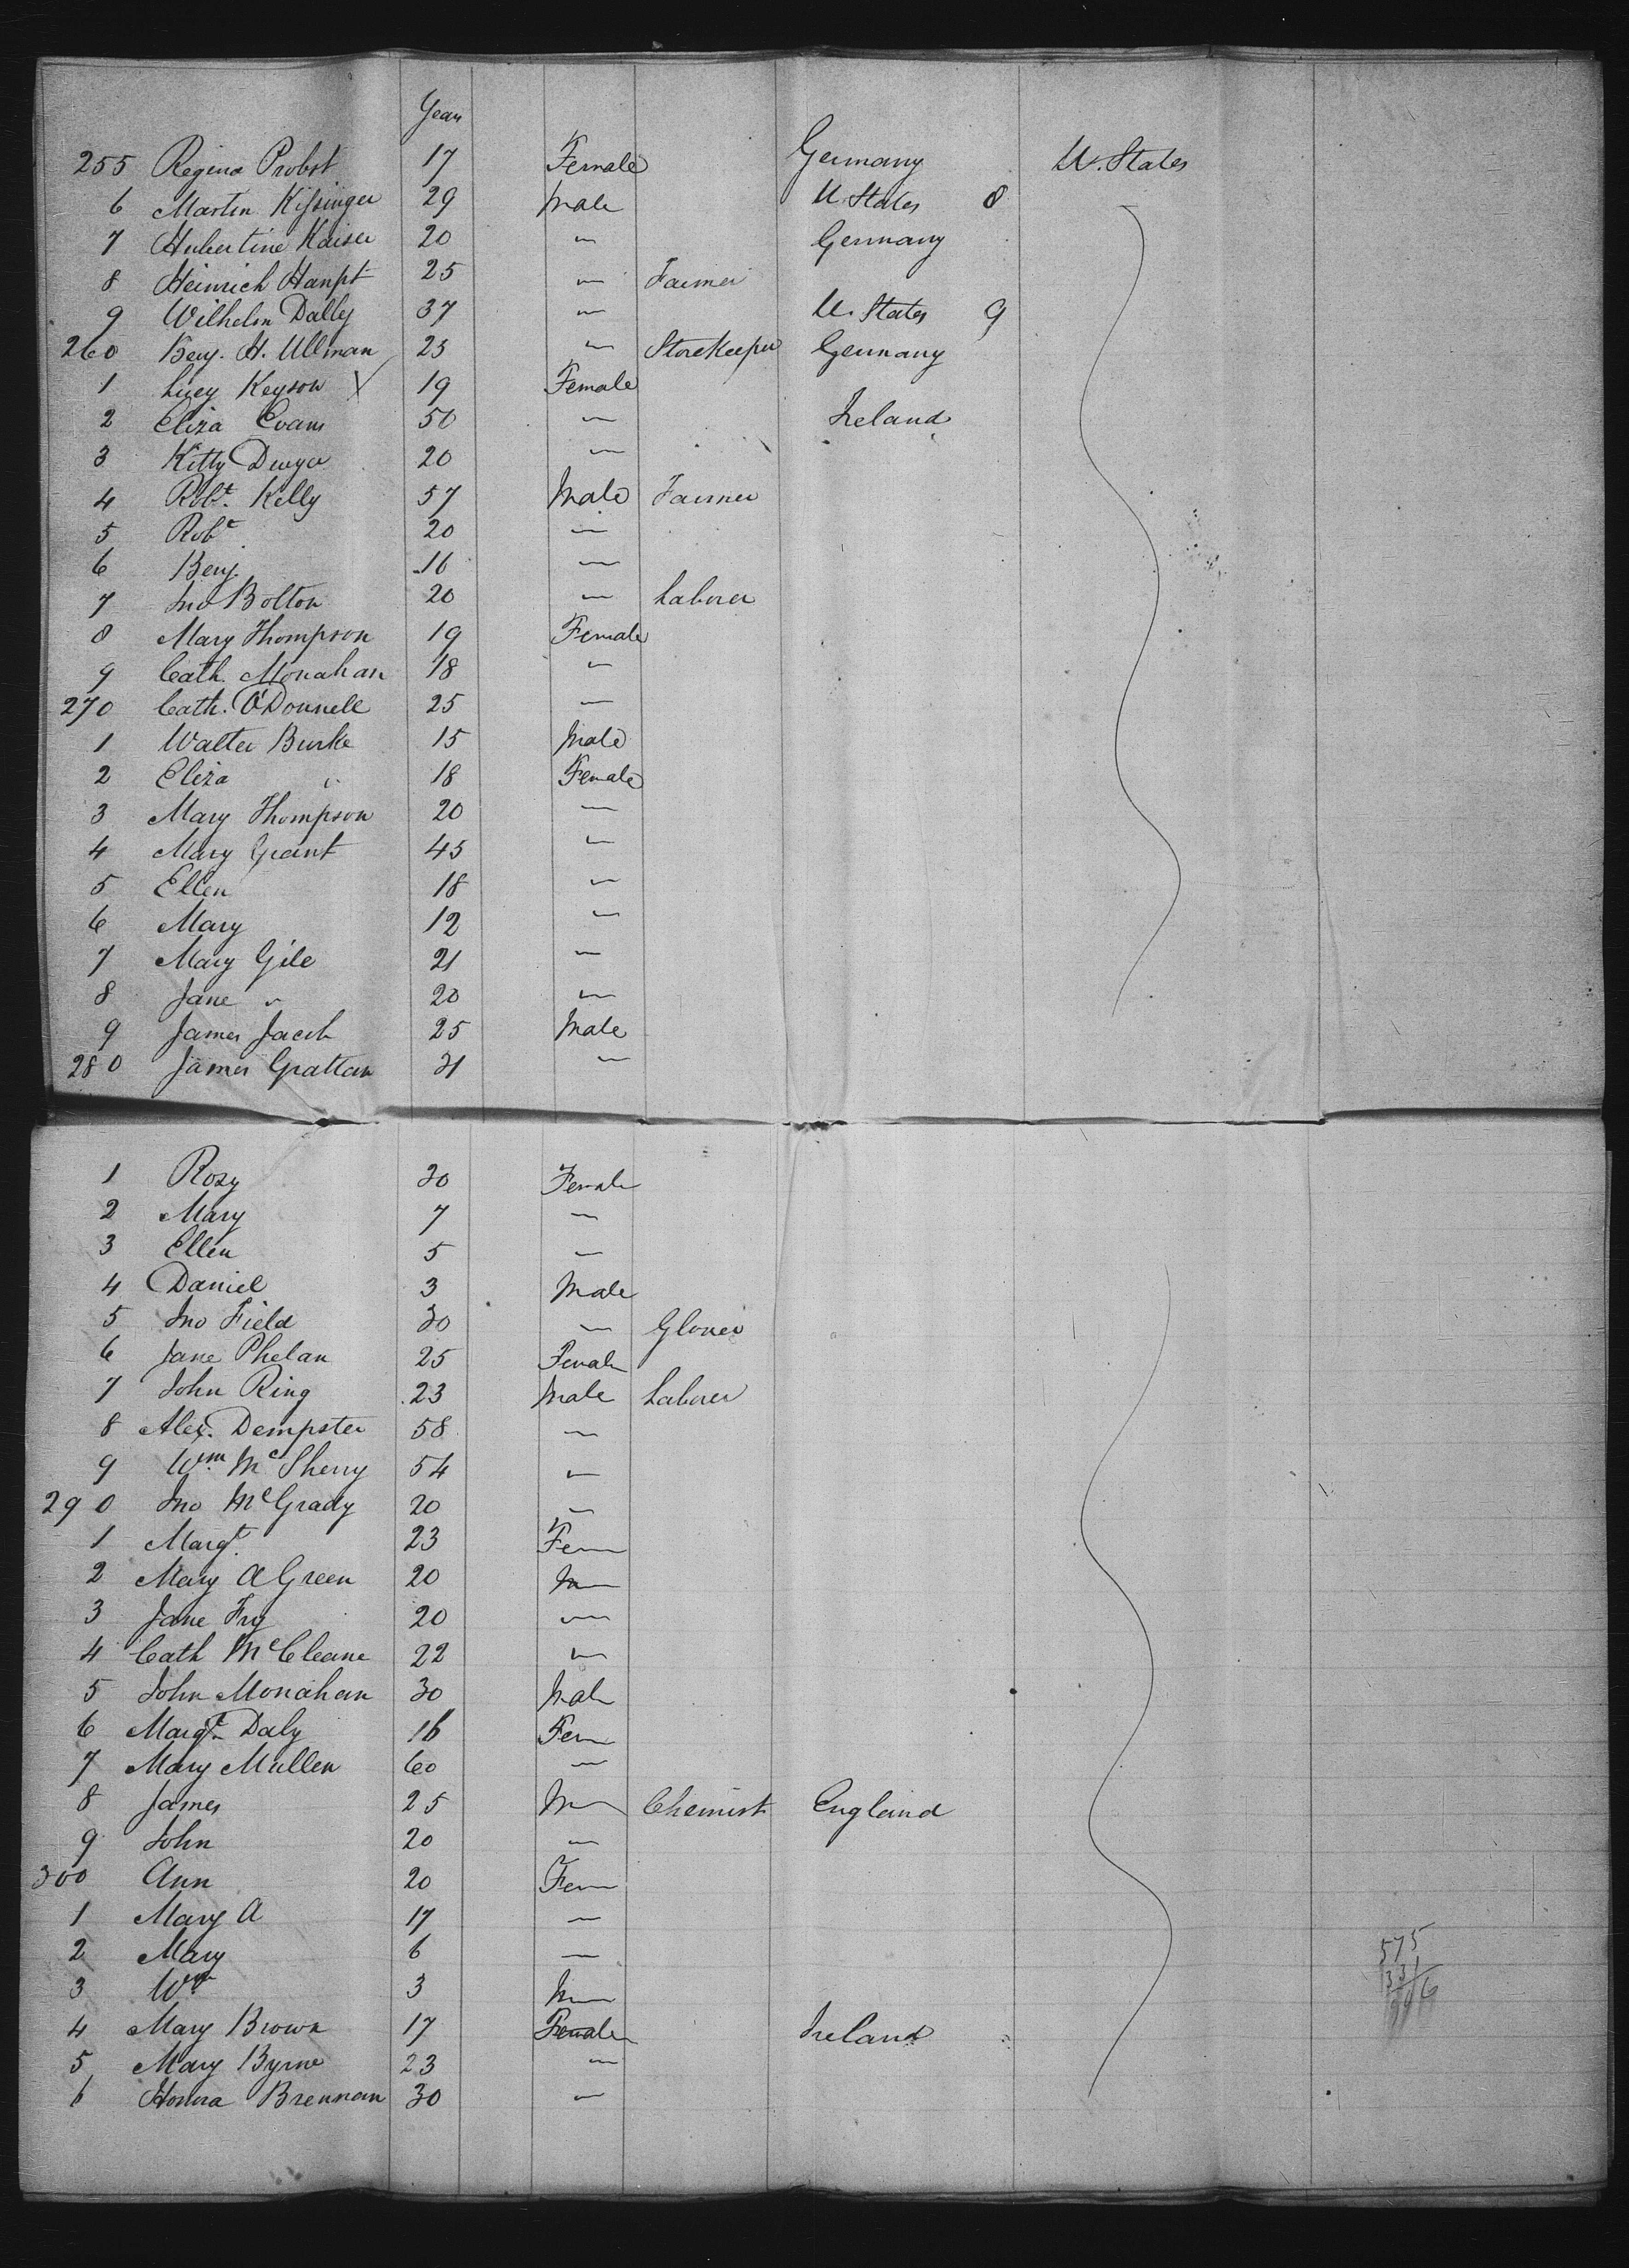 Years
255 Regina Probst 17 Female Germany U. States
6 Martin Kissinger 29 Male U. States 8
7 Hubertine Kaiser 20 " Germany
8 Heinrich Haupt 25 " Farmer
9 Wilhelm Dally 37 " U. States 9
260 Benj. H. Ullman 23 " Storekeeper Germany
1 Lucy Keyson X 19 Female
2 Eliza Evans 50 " Ireland
3 Kitty Dwyer 20 "
4 Robt. Kelly 57 Male Farmer
5 Robt 20 "
6 Benj. 16 "
7 Jno Bolton 20 " Laborer
8 Mary Thompson 19 Female
9 Cath. Monahan 18 "
270 Cath. O'Donnell 25 "
1 Walter Burke 15 Male
2 Eliza " 18 Female
3 Mary Thompson 20 "
4 Mary Grant 45 "
5 Ellen 18 "
6 Mary 12 "
7 Mary Gile 21 "
8 Jane " 20 "
9 James Jacob 25 Male
280 James Grattan 31 "
1 Rosy 30 Female
2 Mary 7 "
3 Ellen 5 "
4 Daniel 3 Male
5 Jno Field 30 " Glover
6 Jane Phelan 25 Female
7 John Ring 23 Male Laborer
8 Alex. Dempster 58 "
9 Wm. McSherry 54 "
290 Jno McGrady 20 "
1 Margt. 23 Fem
2 Mary A Green 20 "
3 Jane Fry 20 "
4 Cath McCleane 22 "
5 John Monahan 30 Male
6 Margt. Daly 16 Fem
7 Mary Mullen 60 "
8 James 25 M Chemist England
9 John 20 "
300 Ann 20 Fem
1 Mary A 17 "
2 Mary 6 "
3 Wm 3 M
4 Mary Brown 17 Female Ireland
5 Mary Byrne 23 "
6 Honora Brennan 30 "
575
331